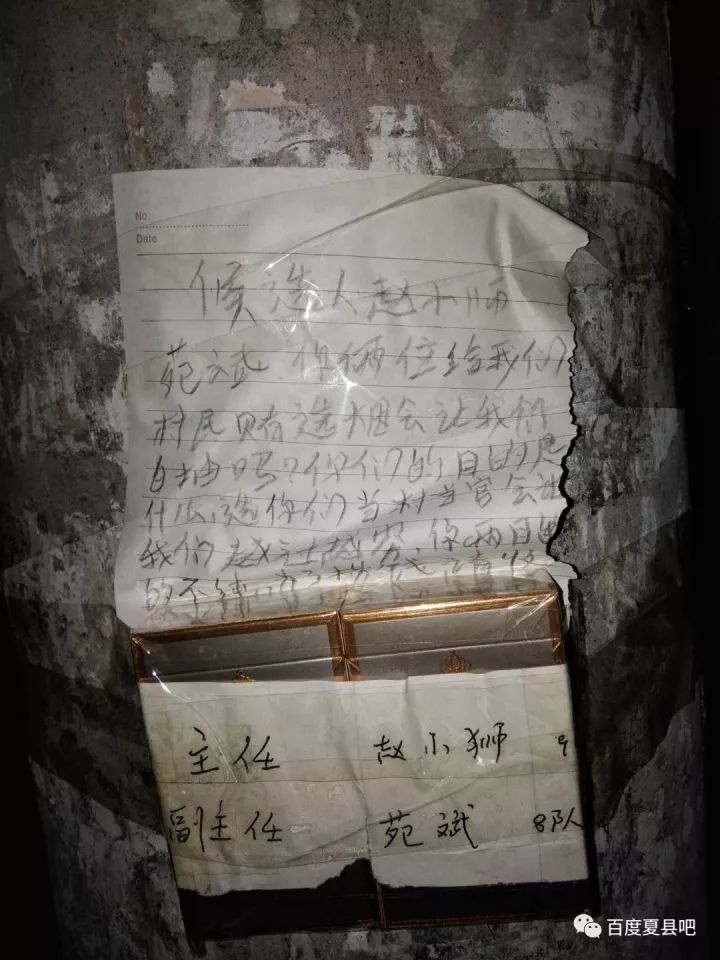 No
Date
候选人赵小师
苑斌.你俩位给我们
村民贿选烟会让我们
白抽吗?你们的目的是
什么,选你们当村当官会让
我们越过越穷.你两自
的不
主任 赵小狮 9
副主任 苑斌 8队
百度夏县吧